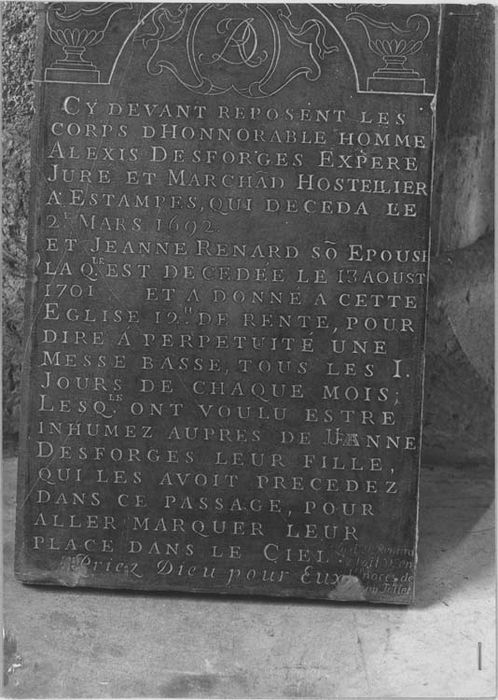 CY DEVANT REPOSENT LES
CORPS DHONNORABLE HOMME
ALEXIS DESFORGES EXPERE
JURE ET MARCHÃD HOSTELLIER
A ESTAMPES, QUI DECEDA LE
MARS 1692.
ET JEANNE RENARD SÕ EPOUSE
LAQ.LE EST DECEDÉE LE 13 AOUST
1701 ET A DONNÉ A CETTE
EGLISE 12.tt DE RENTE, POUR
DIRE A PERPETUITÉ UNE
MESSE BASSE, TOUS LES I.
JOURS DE CHAQUE MOIS;
LESQ.LE ONT VOULU ESTRE
INHUMEZ AUPRES DE JEANNE
DESFORGES LEUR FILLE,
QUI LES AVOIT PRECEDEZ
DANS CE PASSAGE, POUR
ALLER MARQUER LEUR
PLACE DANS LE CIEL.
Priez Dieu pour Eux